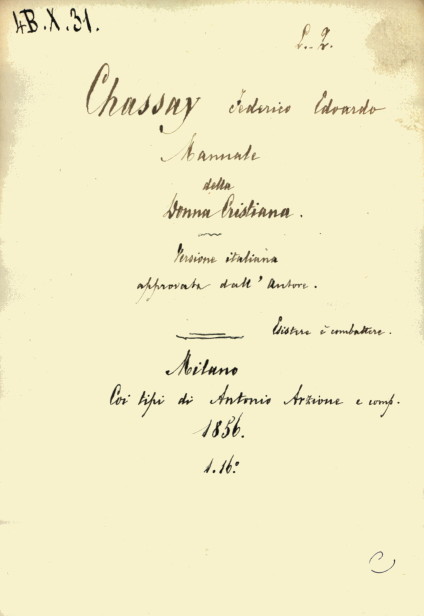 4B.X.31.
L. 2.
Chassay Federico Edoardo
Manuale
della
Donna Cristiana.
Versione italiana
approvata dall' Autore.
Esistere è combattere.
Milano
Coi tipi di Antonio Arzione e comp.
1856.
1.16º